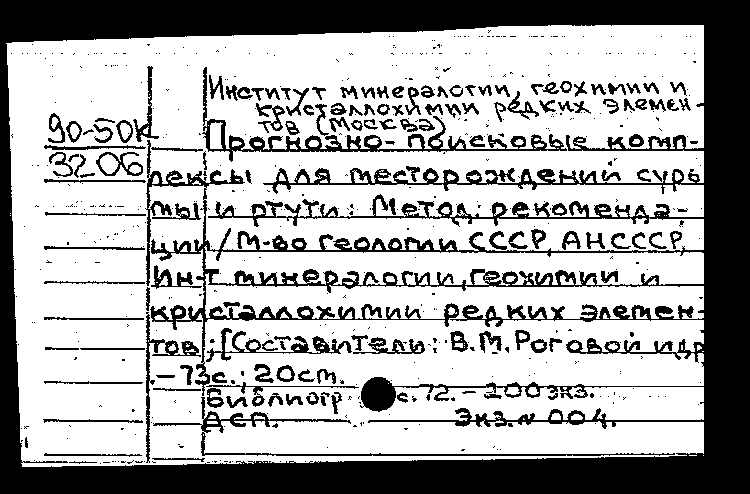 Институт минералогии, геохимии и
кристаллохимии редких элемен-
тов (Москва)
90-50К
3206
Прогнозно-поисковые комп-
лексы для месторождений сурь
мы и ртути: Метод. рекоменда-
ции/М-во геологии СССР, АН СССР,
Ин-т минералогии, геохимии и
кристаллохимии редких элемен-
тов; [Составители: В.М. Роговой и др
.-73с.; 20см.
Библиогр с. 72. - 200 экз.
ДСП. Экз. № 004.